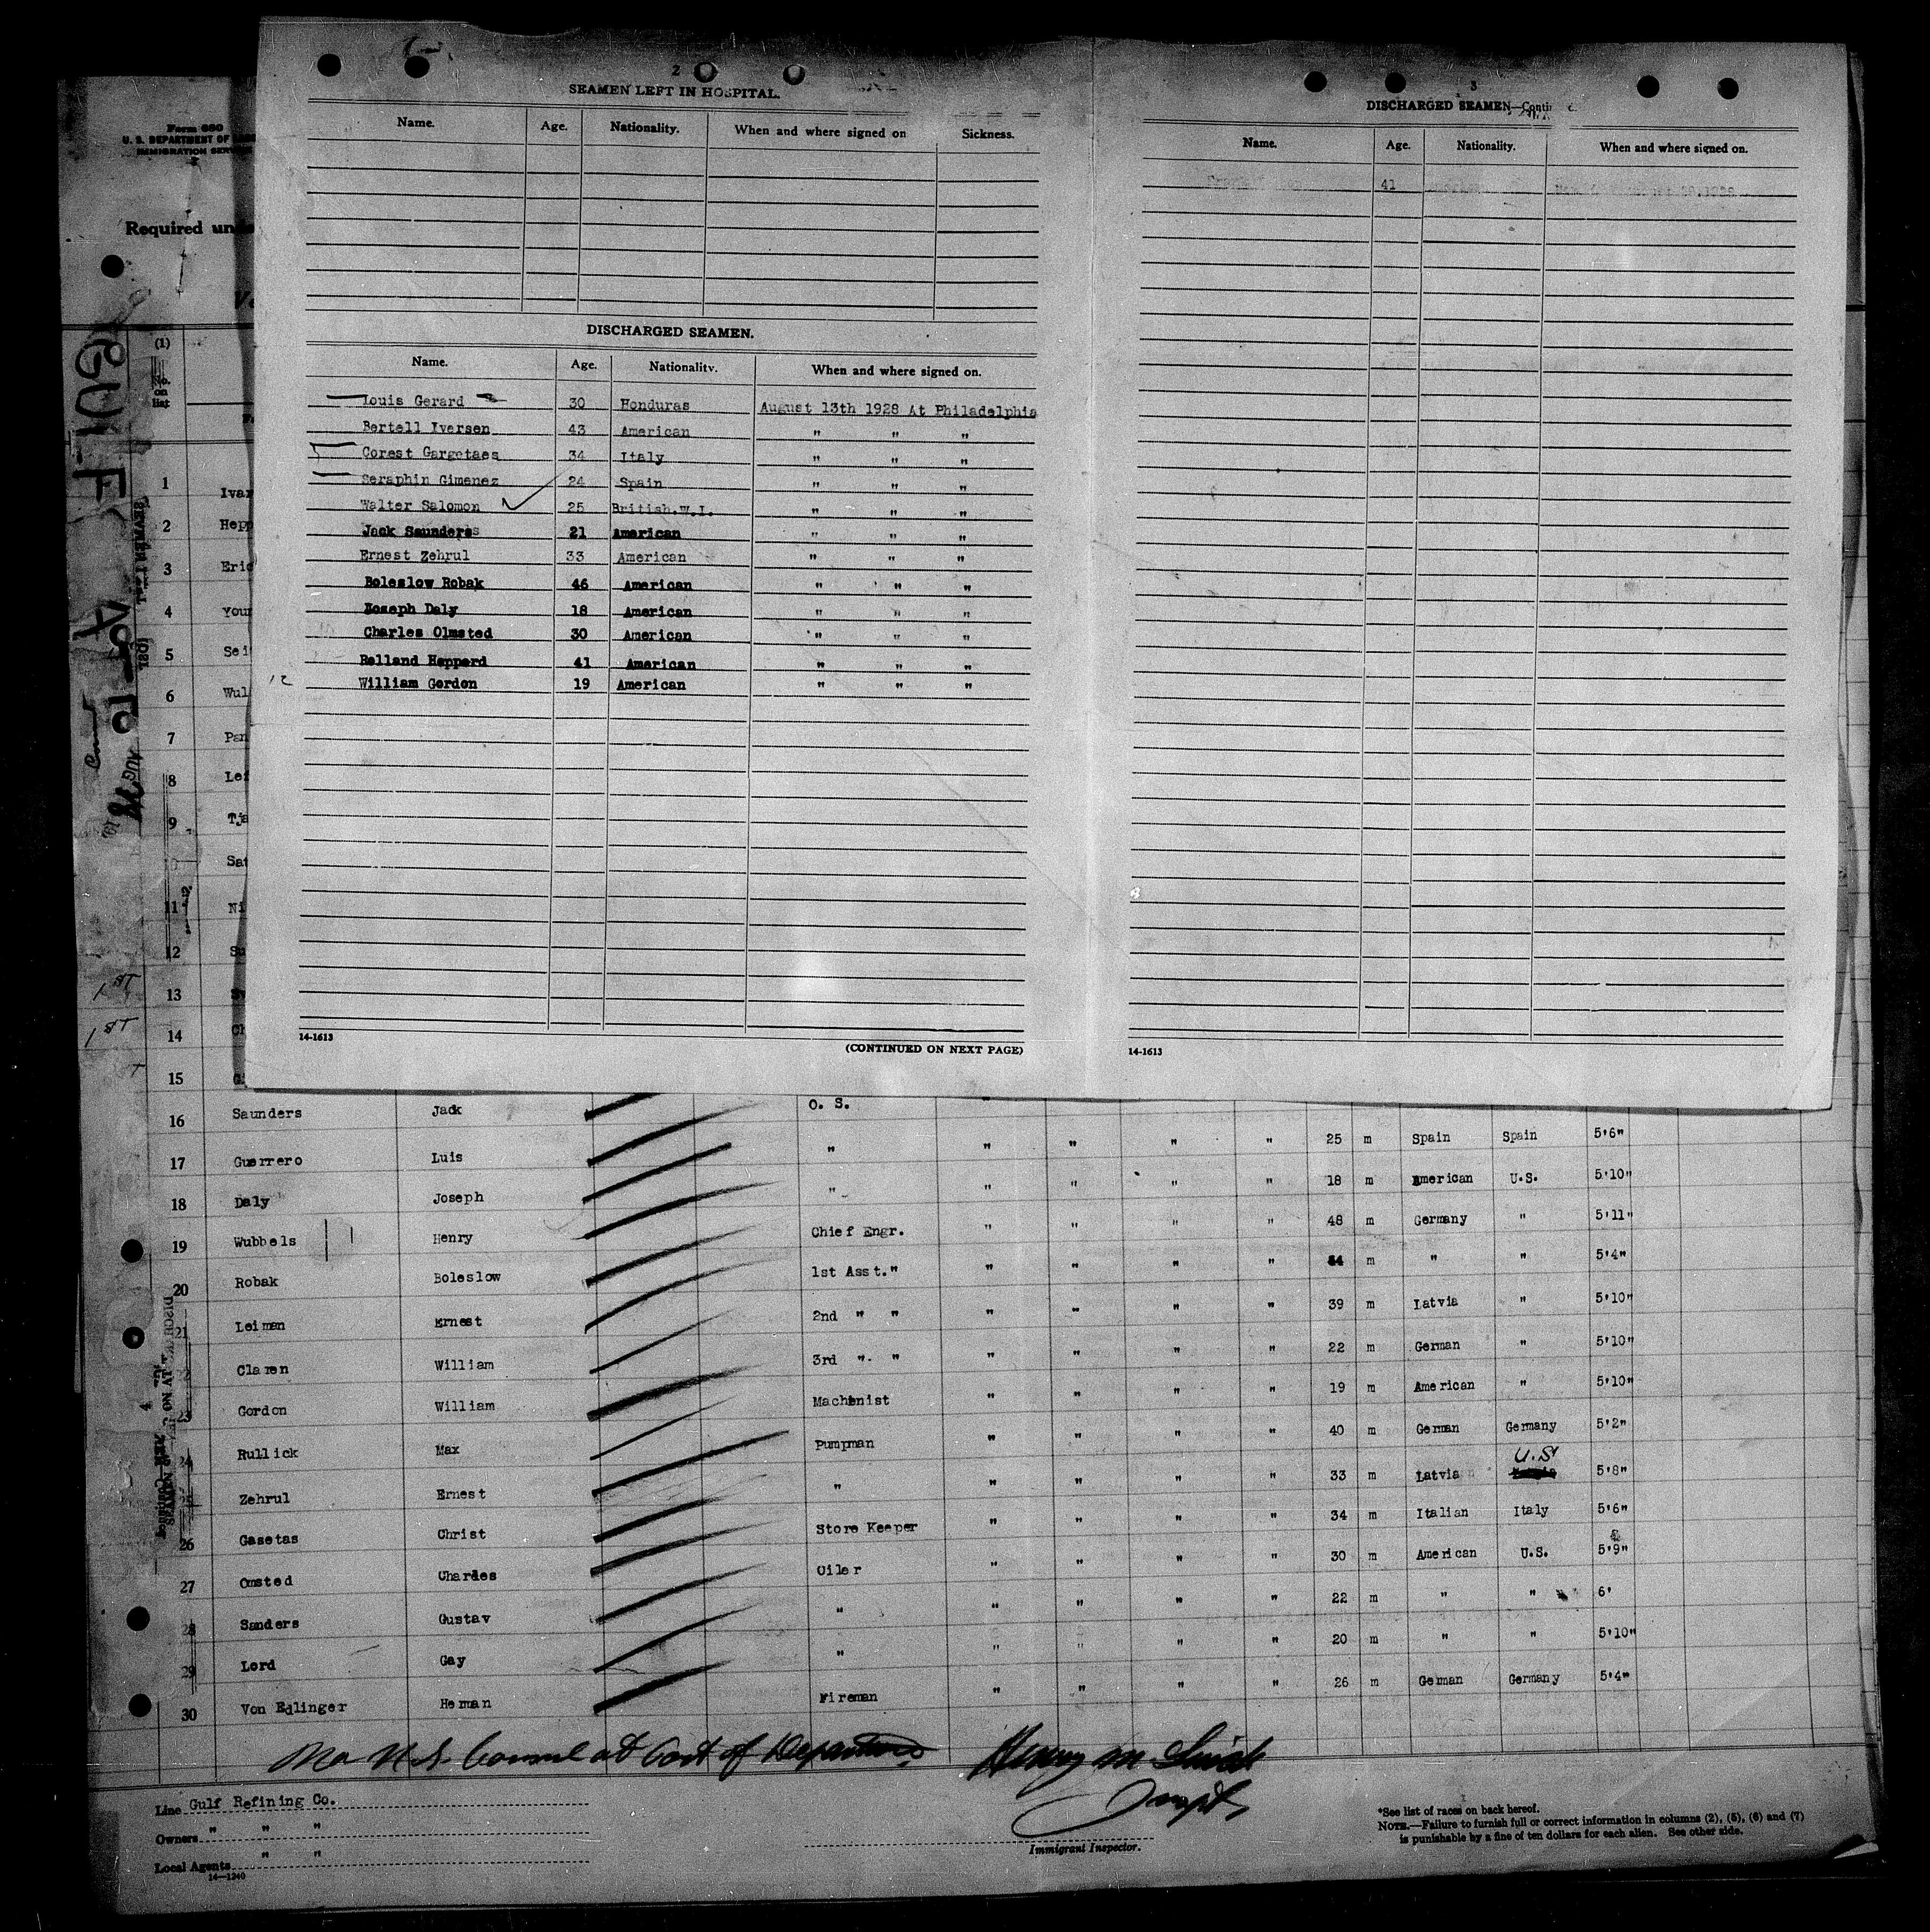 2
SEAMEN LEFT IN HOSPITAL.
Name. Age. Nationality. When and where signed on Sickness.
DISCHARGED SEAMEN.
Name. Age. Nationality. When and where signed on.
Louis Gerard 30 Honduras August 13th 1928 At Philadelphia
Bertell Iversen 43 American " " "
Corest Gargetaes 34 Italy " " "
Seraphin Gimenez 24 Spain " " "
Walter Salomon 25 British.W.I. " " "
Jack Saunders 21 American " " "
Ernest Zehrul 33 American " " "
Boleslow Robak 46 American " " "
Joseph Daly 18 American " " "
Charles Olmsted 30 American " " "
Rolland Hepperd 41 American " " "
William Gordon 19 American " " "
14-1613
(CONTINUED ON NEXT PAGE)
3
DISCHARGED SEAMEN—
Name. Age. Nationality. When and where signed on.
41
14-1613
Form 680
U. S. DEPARTMENT OF
IMMIGRATION
Required
(1)
No. on list
GULF
AUG
1 Ivar
2 Hepp
3 Eric
4 Your
5 Sei
6 Wul
7 Par
8 Lei
9 Tja
Sat
11 Ni
12 Su
1ST 13
1ST 14
15
16 Saunders Jack O. S.
17 Guerrero Luis " " " " " 25 m Spain Spain 5'6"
18 Daly Joseph " " " " " 18 m American U.S. 5'10"
19 Wubbels Henry Chief Engr. " " " " 48 m Germany " 5'11"
20 Robak Boleslow 1st Asst." " " " " m " " 5'4"
21 Leiman Ernest 2nd " " " " " " 39 m Latvia " 5'10"
Claren William 3rd " " " " " " 22 m German " 5'10"
23 Gordon William Machinist " " " " 19 m American " 5'10"
24 Rullick Max Pumpman " " " " 40 m German Germany 5'2"
Zehrul Ernest " " " " " 33 m Latvia U.S 5'8"
26 Gasetas Christ Store Keeper " " " " 34 m Italian Italy 5'6"
27 Omsted Charles Oiler " " " " 30 m American U.S. 5'9"
28 Sanders Gustav " " " " " 22 m " " 6'
29 Lord Gay " " " " " 20 m " " 5'10"
30 Von Edlinger Heman Fireman " " " " 26 m German Germany 5'4"
No U.S. Consul at Port of Departure
Line Gulf Refining Co.
Owners " " "
Local Agents " "
14—1240
Immigrant Inspector.
*See list of races on back hereof.
NOTE.—Failure to furnish full or correct information in columns (2), (5), (6) and (7)
is punishable by a fine of ten dollars for each alien. See other side.